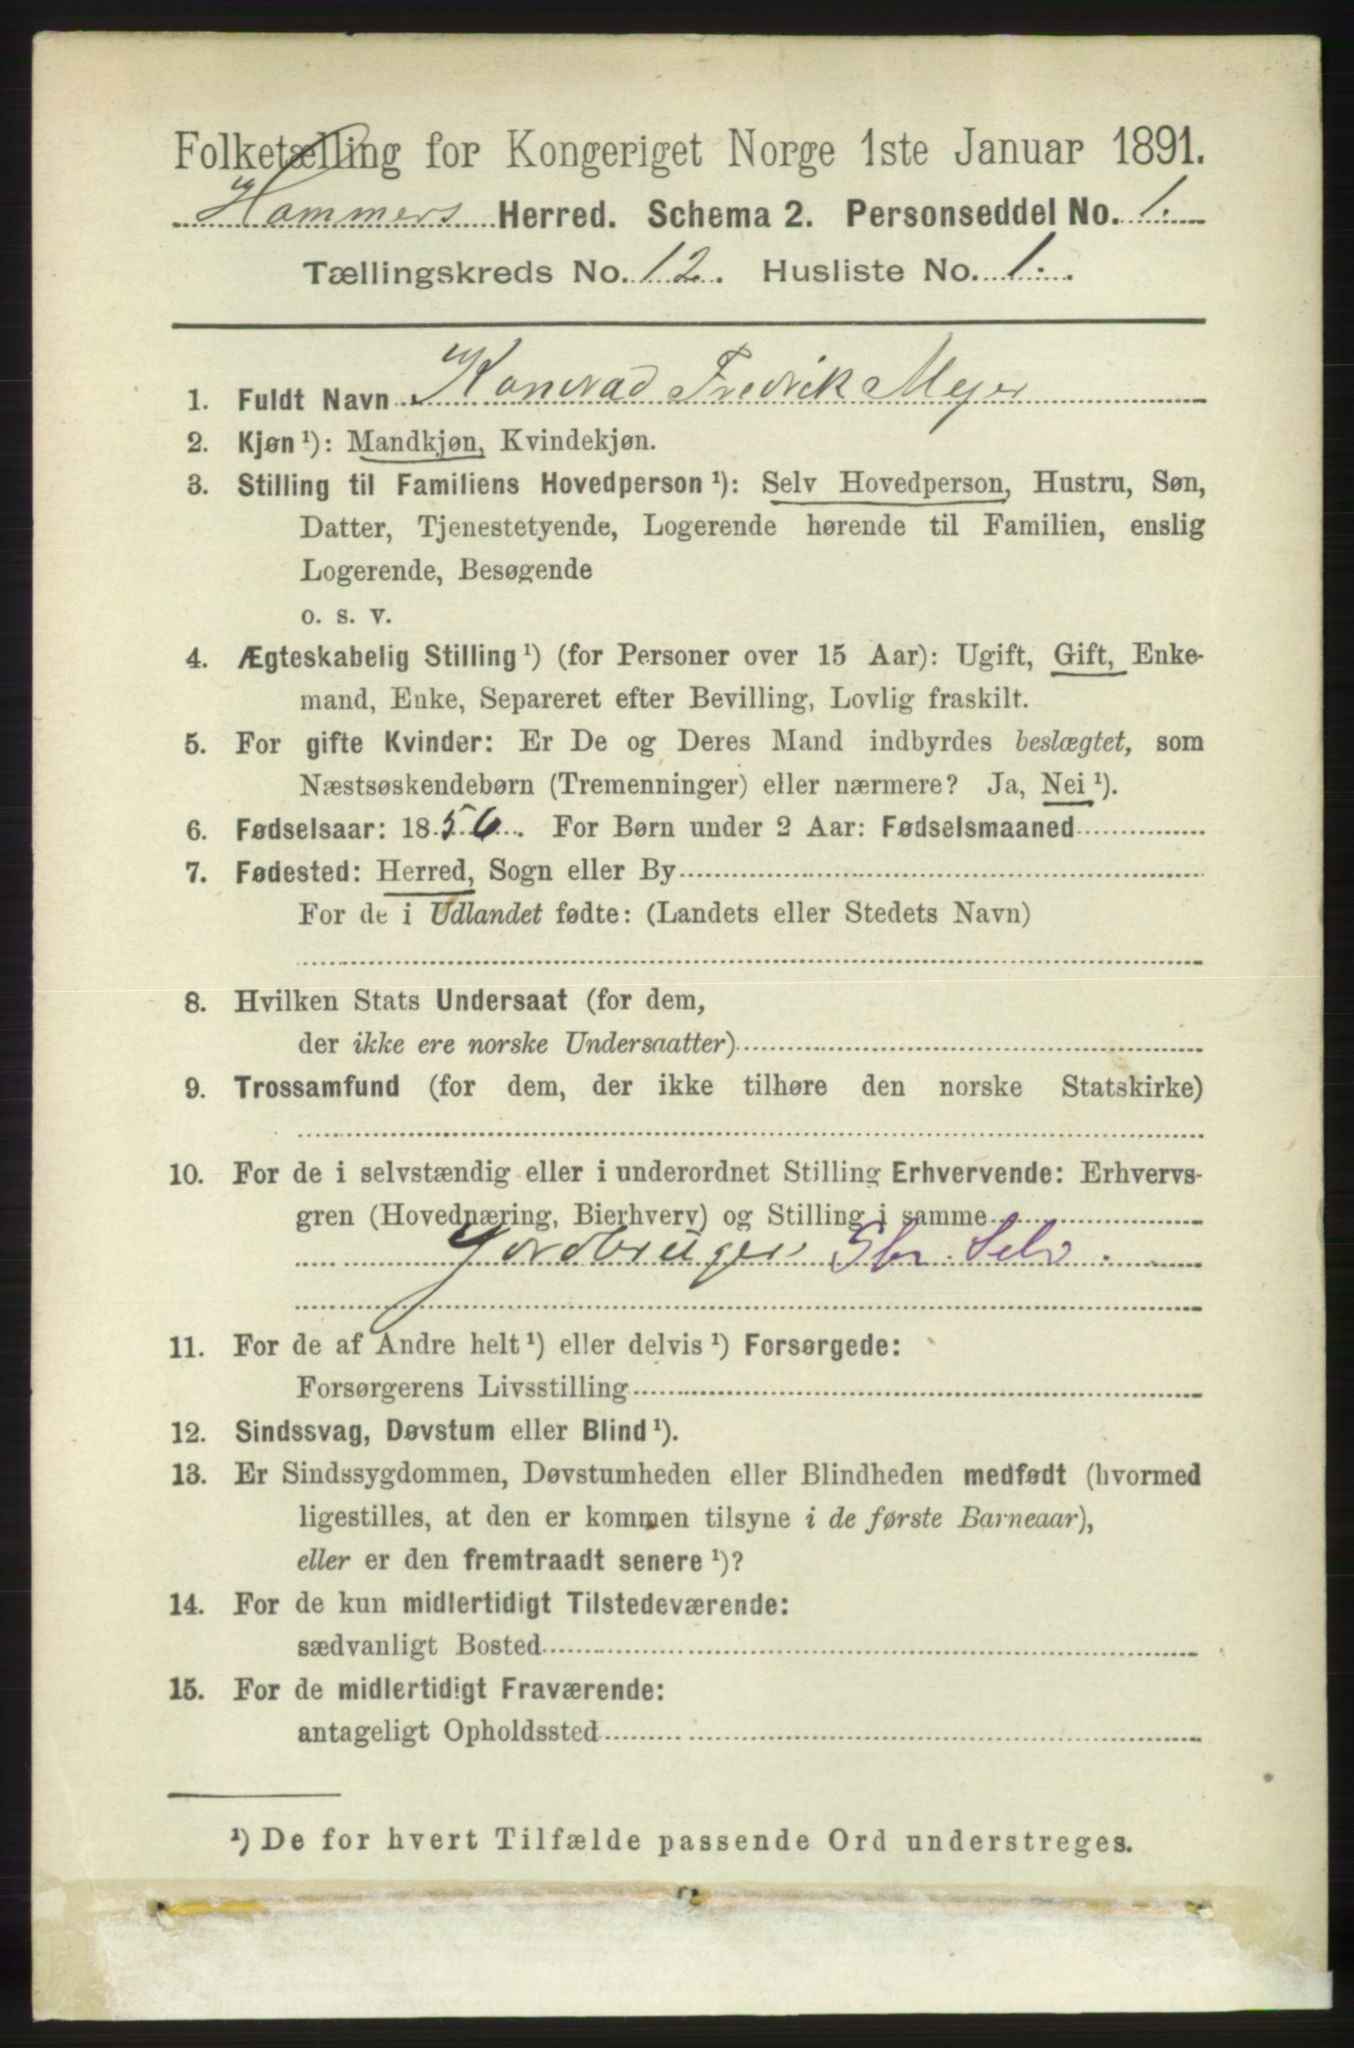 Folketælling for Kongeriget Norge 1ste Januar 1891.
Hammers Herred. Schema 2. Personseddel No. 1.
Tællingskreds No. 12. Husliste No. 1.
1. Fuldt Navn Konrad Fredrik Mejer
2. Kjøn ¹): Mandkjøn, Kvindekjøn.
3. Stilling til Familiens Hovedperson ¹): Selv Hovedperson, Hustru, Søn,
Datter, Tjenestetyende, Logerende hørende til Familien, enslig
Logerende, Besøgende
o. s. v.
4. Ægteskabelig Stilling ¹) (for Personer over 15 Aar): Ugift, Gift, Enke-
mand, Enke, Separeret efter Bevilling, Lovlig fraskilt.
5. For gifte Kvinder: Er De og Deres Mand indbyrdes beslægtet, som
Næstsøskendebørn (Tremenninger) eller nærmere? Ja, Nei ¹).
6. Fødselsaar: 1856. For Børn under 2 Aar: Fødselsmaaned
7. Fødested: Herred, Sogn eller By
For de i Udlandet fødte: (Landets eller Stedets Navn)
8. Hvilken Stats Undersaat (for dem,
der ikke ere norske Undersaatter)
9. Trossamfund (for dem, der ikke tilhøre den norske Statskirke)
10. For de i selvstændig eller i underordnet Stilling Erhvervende: Erhvervs-
gren (Hovednæring, Bierhverv) og Stilling i samme
Jordbruger Gbr. Selv.
11. For de af Andre helt ¹) eller delvis ¹) Forsørgede:
Forsørgerens Livsstilling
12. Sindssvag, Døvstum eller Blind ¹).
13. Er Sindssygdommen, Døvstumheden eller Blindheden medfødt (hvormed
ligestilles, at den er kommen tilsyne i de første Barneaar),
eller er den fremtraadt senere ¹)?
14. For de kun midlertidigt Tilstedeværende:
sædvanligt Bosted
15. For de midlertidigt Fraværende:
antageligt Opholdssted
¹) De for hvert Tilfælde passende Ord understreges.